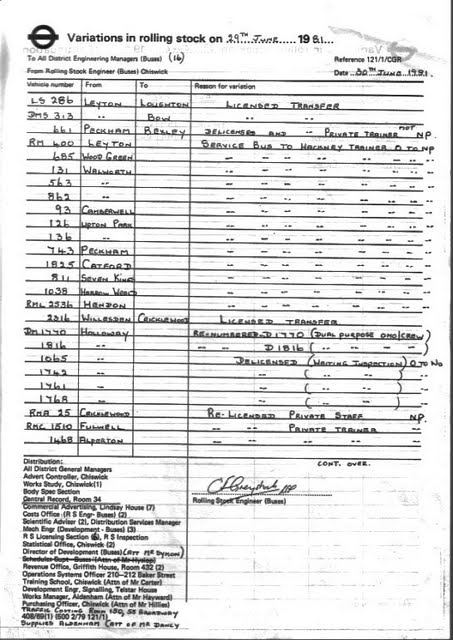 Variations in rolling stock on 29TH JUNE 1981...
To All District Engineering Managers (Buses) (16)
Reference 121/1/CGR
From Rolling Stock Engineer (Buses) Chiswick
Date 30TH JUNE 1981.
Vehicle number From To Reason for variation
LS 286 LEYTON LOUGHTON LICENSED TRANSFER
DMS 313 -- BOW -- --
661 PECKHAM BEXLEY DELICENSED AND -- PRIVATE TRAINER NOT NP.
RM 400 LEYTON SERVICE BUS TO HACKNEY TRAINER O TO NP
685 WOOD GREEN -- -- -- -- -- --
131 WALWORTH -- -- -- -- -- --
563 -- -- -- -- -- -- --
862 -- -- -- -- -- -- --
93 CAMBERWELL -- -- -- -- -- --
126 UPTON PARK -- -- -- -- -- --
136 -- -- -- -- -- -- --
743 PECKHAM -- -- -- -- -- --
1825 CATFORD -- -- -- -- -- --
811 SEVEN KINGS -- -- -- -- -- --
1038 HARROW WEALD -- -- -- -- -- --
RML 2536 HENDON -- -- -- -- -- --
2316 WILLESDEN CRICKLEWOOD LICENSED TRANSFER
DM 1770 HOLLOWAY RE-NUMBERED D1770 (DUAL PURPOSE OMO/CREW)
1816 -- -- -- D1816 ( -- -- )
1065 -- DELICENSED (WAITING INSPECTION) O TO NO
1742 -- -- ( -- -- ) --
1761 -- -- ( -- -- ) --
1768 -- -- ( -- -- ) --
RMA 25 CRICKLEWOOD RE-LICENSED PRIVATE STAFF NP.
RMC 1510 FULWELL -- -- PRIVATE TRAINER --
1468 ALPERTON -- -- -- -- --
CONT. OVER.
Distribution:
All District General Managers
Advert Controller, Chiswick
Works Study, Chiswick(1)
Body Spec Section
Central Record, Room 34
Rolling Stock Engineer (Buses)
Commercial Advertising, Lindsay House (7)
Costs Office (R S Engr- Buses) (2)
Scientific Adviser (2), Distribution Services Manager
Mech Engr (Development - Buses) (3)
R S Licensing Section, R S Inspection
Statistical Office, Chiswick (2)
Director of Development (Buses) (ATT MR DYMON)
Schedules Supt - Buses (Attn of Mr Hyslop)
Revenue Office, Griffith House, Room 432 (2)
Operations Systems Officer 210-212 Baker Street
Training School, Chiswick (Attn of Mr Carter)
Development Engr, Signalling, Telstar House
Works Manager, Aldenham (Attn of Mr Hayward)
Purchasing Officer, Chiswick (Attn of Mr Hillies)
TRAFFIC COSTING ROOM 130, 55 BROADWAY
408/69(1) (500 2/79 121/1)
SUPPLIES ALDENHAM (ATT OF MR DANCY